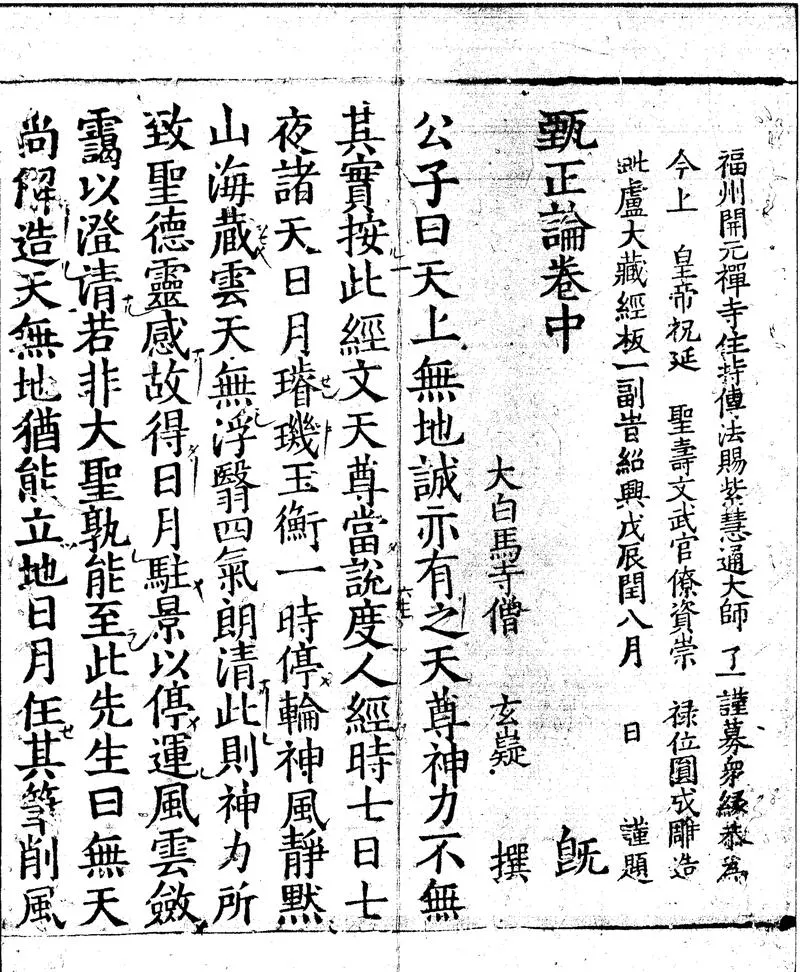 福州開元禪寺住持傳法賜紫慧通大師 了一謹募衆緣恭爲
今上 皇帝祝延 聖壽文武官僚資崇 禄位圓成雕造
毗盧大藏經板一副旹紹興戊辰閏八月 日 謹題
甄正論卷中 旣
大白馬寺僧 玄嶷 撰
公子曰天上無地誠亦有之天尊神力不無
其實按此經文天尊當説度人經時七日七
夜諸天日月璿璣玉衡一時停輪神風靜默
山海藏雲天無浮翳四氣朗清此則神力所
致聖德靈感故得日月駐景以停運風雲斂
靄以澄清若非大聖孰能至此先生曰無天
尚解造天無地猶能立地日月任其筆削風